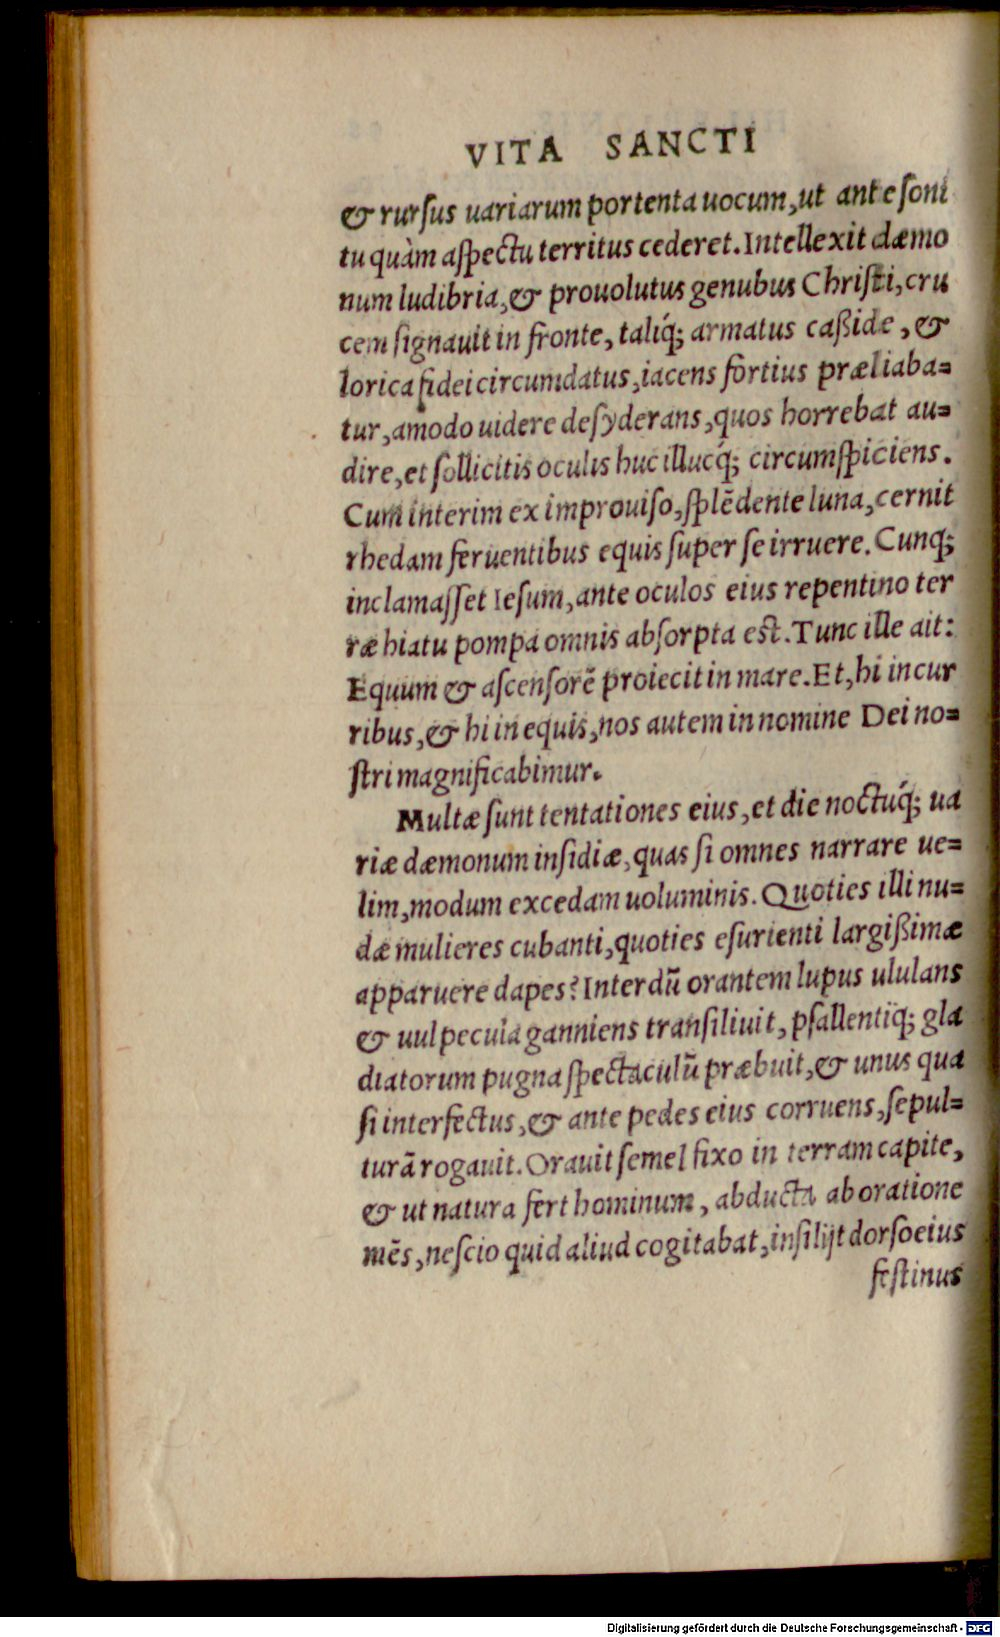 VITA SANCTI
& rursus uariarum portenta uocum, ut ante soni
tu quàm aspectu territus cederet. Intellexit dæmo
num ludibria, & prouolutus genubus Christi, cru
cem signauit in fronte, taliq́; armatus caßide, &
lorica fidei circumdatus, iacens fortius præliaba=
tur, amodo uidere desyderans, quos horrebat au=
dire, et sollicitis oculis huc illucq́; circumspiciens.
Cum interim ex improuiso, splēdente luna, cernit
rhedam feruentibus equis super se irruere. Cunq;
inclamasset Iesum, ante oculos eius repentino ter
ræ hiatu pompa omnis absorpta est. Tunc ille ait:
Equum & ascensorē proiecit in mare. Et, hi in cur
ribus, & hi in equis, nos autem in nomine Dei no=
stri magnificabimur.
Multæ sunt tentationes eius, et die noctuq́; ua
riæ dæmonum insidiæ, quas si omnes narrare ue=
lim, modum excedam uoluminis. Quoties illi nu=
dæ mulieres cubanti, quoties esurienti largißimæ
apparuere dapes? Interdū orantem lupus ululans
& uulpecula ganniens transiliuit, psallentiq̈; gla
diatorum pugna spectaculū præbuit, & unus qua
si interfectus, & ante pedes eius corruens, sepul=
turā rogauit. Orauit semel fixo in terram capite,
& ut natura fert hominum, abducta ab oratione
mēs, nescio quid aliud cogitabat, insilijt dorso eius
festinus
Digitalisierung gefördert durch die Deutsche Forschungsgemeinschaft - DFG